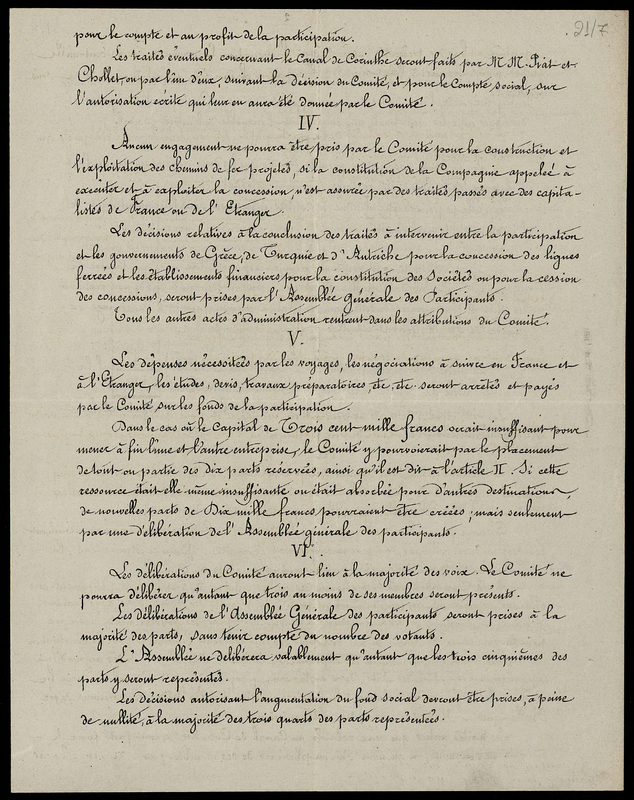 21/7
pour le compte et au profit de la participation.
Les traités éventuels concernant le Canal de Corinthe seront faits par M M. Piat et
Chollet, ou par l'un d'eux, suivant la décision du Comité, et pour le Compte social, sur
l'autorisation écrite qui leur en aura été donnée par le Comité.
IV.
Aucun engagement ne pourra être pris par le Comité pour la construction et
l'exploitation des chemins de fer projetés, si la constitution de la Compagnie appelée à
exécuter et à exploiter la concession, n'est assurée par des traités passés avec des capita-
listes de France ou de l'Etranger.
Les décisions relatives à la conclusion des traités à intervenir entre la participation
et les gouvernements de Grèce, de Turquie et d'Autriche pour la concession des lignes
ferrées et les établissements financiers pour la constitution des Sociétés ou pour la cession
des concessions, seront prises par l'Assemblée générale des Participants.
Tous les autres actes d'administration rentrent dans les attributions du Comité.
V.
Les dépenses nécessitées par les voyages, les négociations à suivre en France et
à l'Etranger, les études, devis, travaux préparatoires, etc, etc. seront arrêtés et payés
par le Comité sur les fonds de la participation.
Dans le cas où le capital de Trois cent mille francs serait insuffisant pour
mener à fin l'une et l'autre entreprise, le Comité y pourvoierait par le placement
de tout ou partie des Dix parts réservées, ainsi qu'il est dit à l'article II. Si cette
ressource était elle même insuffisante ou était absorbée pour d'autres destinations,
de nouvelles parts de Dix mille francs pourraient être créées; mais seulement
par une délibération de l'Assemblée générale des participants.
VI.
Les délibérations du Comité auront lieu à la majorité des voix. Le Comité ne
pourra délibérer qu'autant que trois au moins de ses membres seront présents.
Les délibérations de l'Assemblée Générale des participants seront prises à la
majorité des parts, sans tenir compte du nombre des votants.
L'Assemblée ne délibérera valablement qu'autant que les trois cinquièmes des
parts y seront représentés.
Les décisions autorisant l'augmentation du fond social devront être prises, à peine
de nullité, à la majorité des trois quarts des parts représentées.